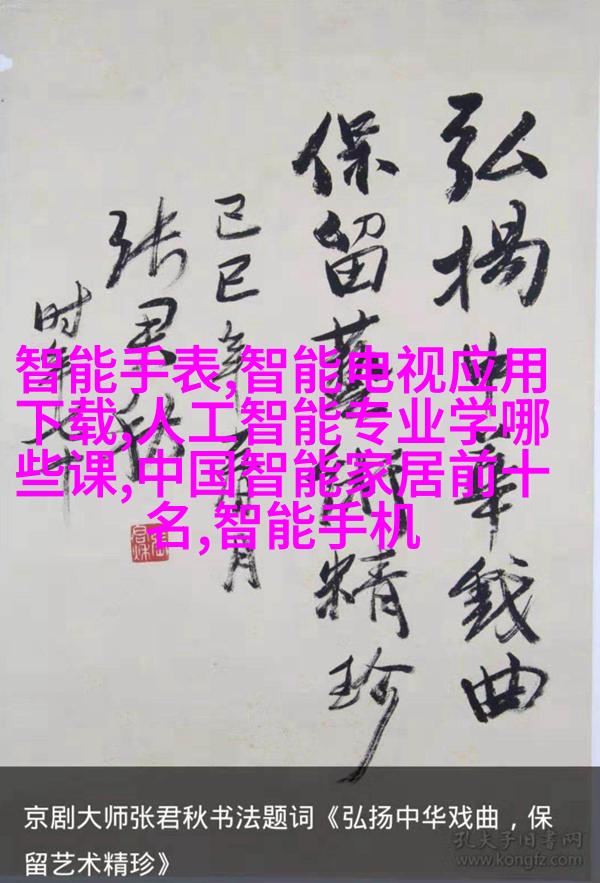 弘揚中華戲曲
保留藝術精珍
己巳年月
张君秋
时年
智能手表,智能电视应用
下载,人工智能专业学哪
些课,中国智能家居前十
名,智能手机
京剧大师张君秋书法题词《弘扬中华戏曲，保
留艺术精珍》
孔夫子旧书网
www.kongfz.com